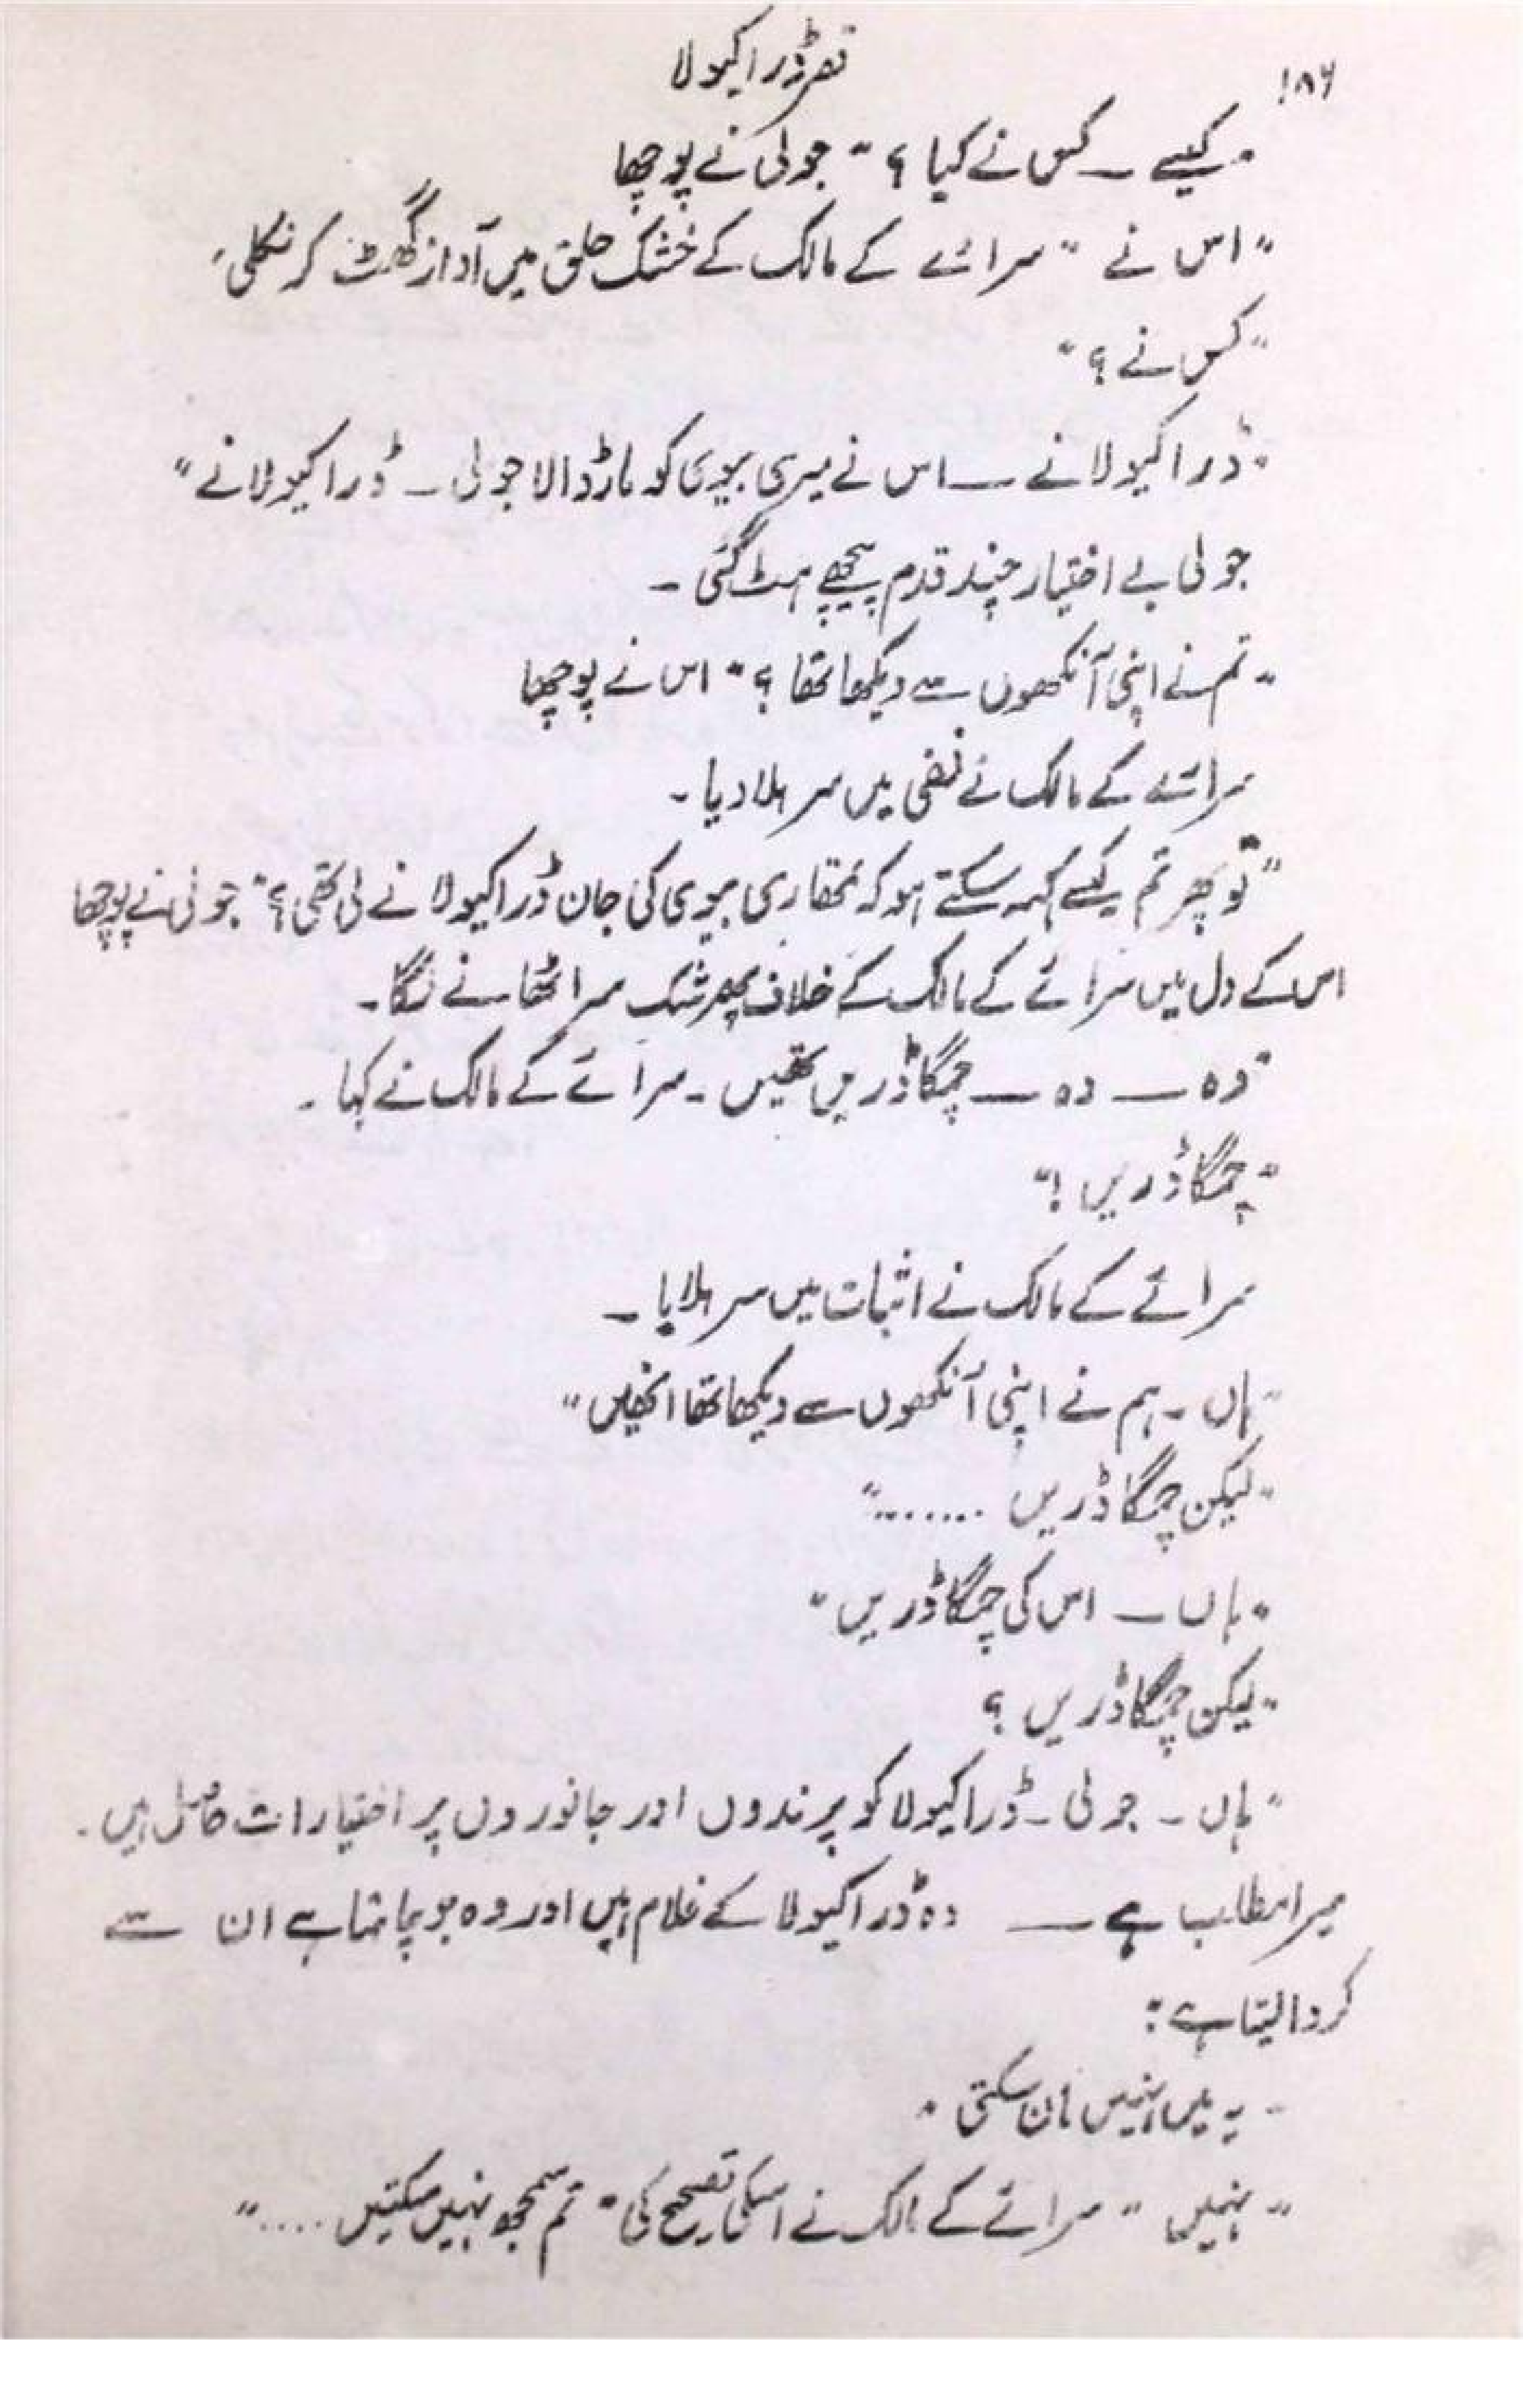 ۱۸۶
تھرڈ ڈراکیولا
"کیسے ــ کس نے کیا ؟" جولی نے پوچھا
"اس نے" سرائے کے مالک کے خشک حلق میں آواز گھٹ کر نکلی۔
"کس نے ؟"
"ڈراکیولا نے ــ اس نے میری بیوی کو مار ڈالا جولی ــ ڈراکیولا نے"
جولی بے اختیار چند قدم پیچھے ہٹ گئی ۔
"تم نے اپنی آنکھوں سے دیکھا تھا ؟" اس نے پوچھا
سرائے کے مالک نے نفی میں سر ہلا دیا ۔
"تو پھر تم کیسے کہہ سکتے ہو کہ تمھاری بیوی کی جان ڈراکیولا نے لی تھی ؟" جولی نے پوچھا
اس کے دل میں سرائے کے مالک کے خلاف پھر شک سر اٹھانے لگا ۔
"وہ ــ وہ ــ چمگاڈریں تھیں ۔ سرائے کے مالک نے کہا ۔
"چمگاڈریں !"
سرائے کے مالک نے اثبات میں سر ہلایا ۔
"ہاں ۔ ہم نے اپنی آنکھوں سے دیکھا تھا انھیں"
"لیکن چمگاڈریں ........"
"ہاں ــ اس کی چمگاڈریں"
"لیکن چمگاڈریں ؟
"ہاں ۔ جولی ۔ ڈراکیولا کو پرندوں اور جانوروں پر اختیارات حاصل ہیں ۔
میرا مطلب ہے ــ وہ ڈراکیولا کے غلام ہیں اور وہ جو چاہتا ہے ان سے
کروا لیتا ہے"
"یہ میں نہیں مان سکتی"
"نہیں" سرائے کے مالک نے اسکی تصحیح کی "تم سمجھ نہیں سکتیں ...."